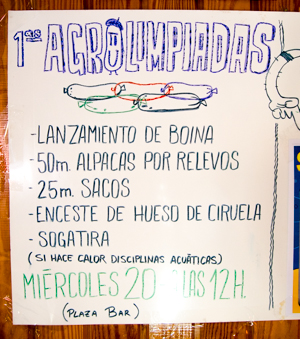 1as AGROLIMPIADAS
-LANZAMIENTO DE BOINA
-50m. ALPACAS POR RELEVOS
-25m. SACOS
-ENCESTE DE HUESO DE CIRUELA
-SOGATIRA
(SI HACE CALOR DISCIPLINAS ACUÁTICAS)
MIÉRCOLES 20 A LAS 12H.
(PLAZA BAR)